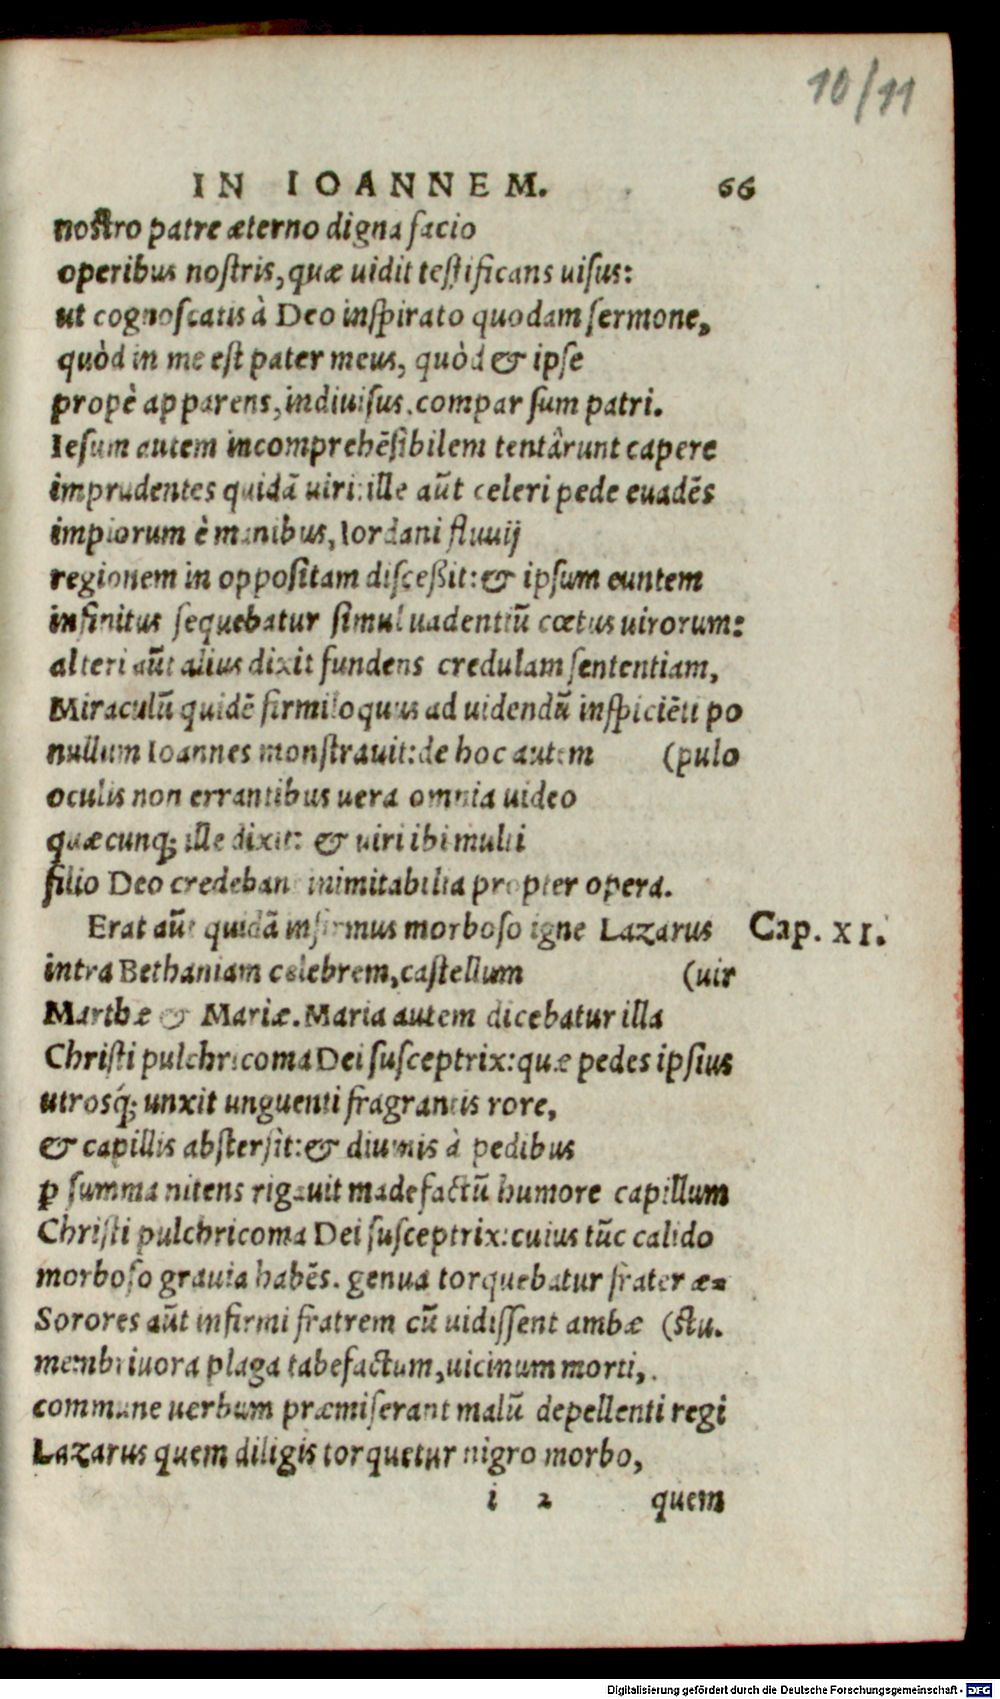 10/11
IN IOANNEM. 66
nostro patre æterno digna facio
operibus nostris, quæ uidit testificans uisus:
ut cognoscatis à Deo inspirato quodam sermone,
quòd in me est pater meus, quòd & ipse
propè apparens, indiuisus. compar sum patri.
Iesum autem incomprehēsibilem tentârunt capere
imprudentes quidā uiri: ille aūt celeri pede euadēs
impiorum è manibus, Iordani fluuij
regionem in oppositam discessit: & ipsum euntem
infinitus sequebatur simul uadentiū cœtus uirorum:
alteri aūt alius dixit fundens credulam sententiam,
Miraculū quidē firmiloquus ad uidendū inspiciēti po
nullum Ioannes monstrauit: de hoc autem (pulo
oculis non errantibus uera omnia uideo
quæcunq; ille dixit: & uiri ibi multi
filio Deo credebant inimitabilia propter opera.
Erat aūt quidā infirmus morboso igne Lazarus Cap. XI.
intra Bethaniam celebrem, castellum (uir
Marthæ & Mariæ. Maria autem dicebatur illa
Christi pulchricoma Dei susceptrix: quæ pedes ipsius
utrosq́; unxit unguenti fragrantis rore,
& capillis abstersit: & diuinis à pedibus
ꝑ summa nitens rigauit madefactū humore capillum
Christi pulchricoma Dei susceptrix: cuius tūc calido
morboso grauia habēs. genua torquebatur frater æ-
Sorores aūt infirmi fratrem cū uidissent ambæ (stu.
membriuora plaga tabefactum, uicinum morti,.
commune uerbum præmiserant malū depellenti regi
Lazarus quem diligis torquetur nigro morbo,
i 2 quem
Digitalisierung gefördert durch die Deutsche Forschungsgemeinschaft - DFG